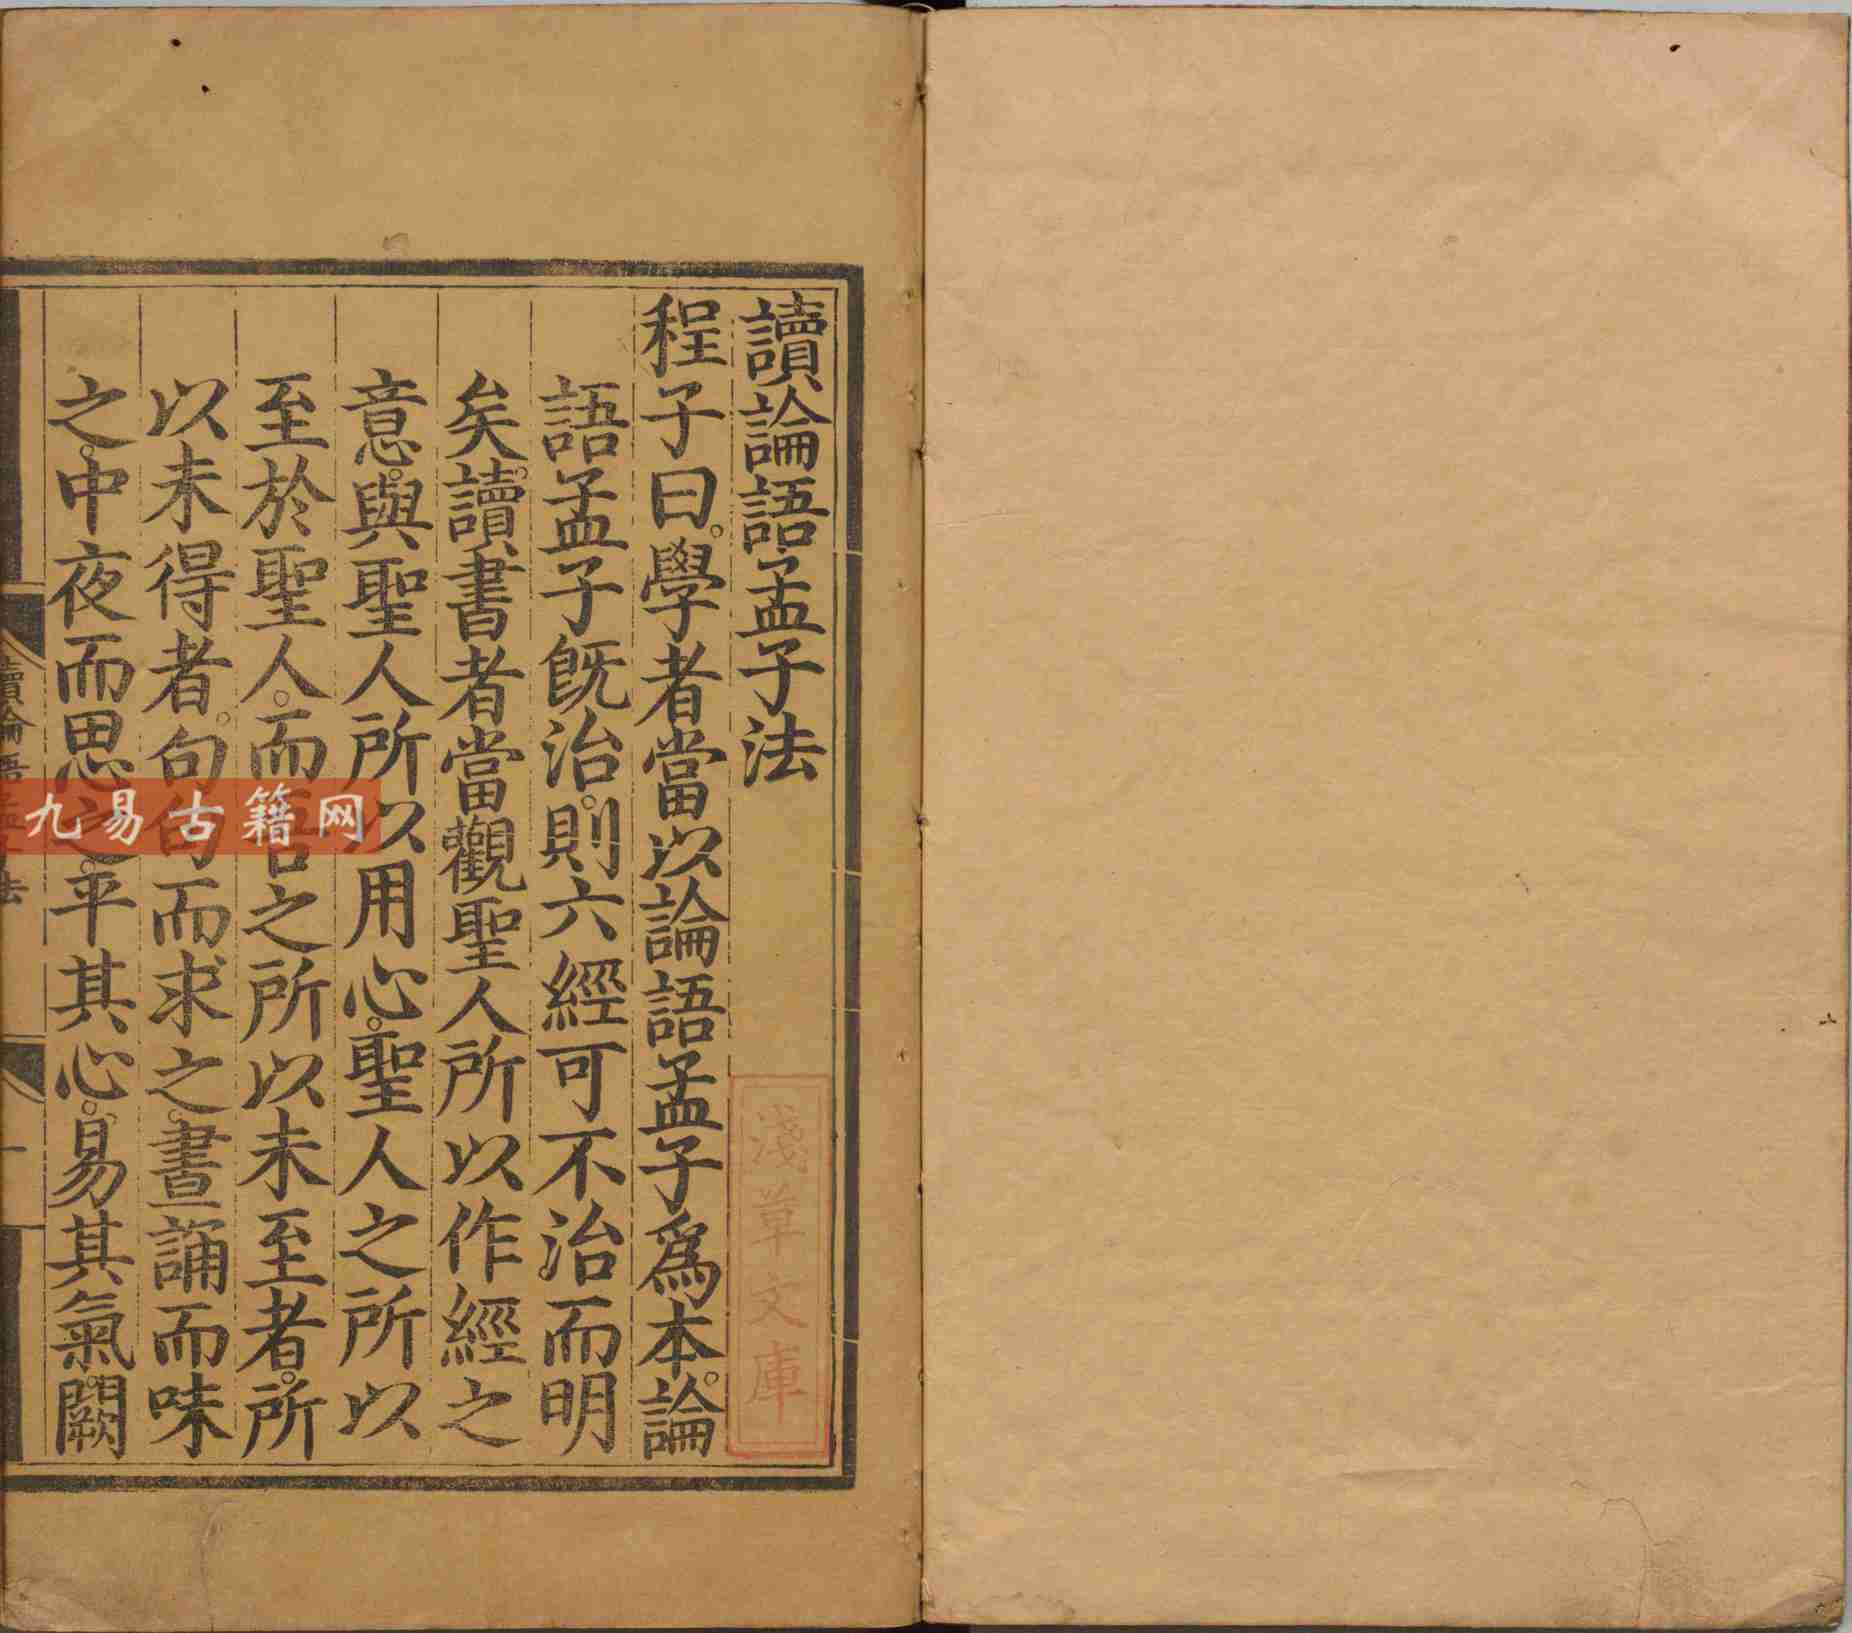 讀論語孟子法
程子曰。學者當以論語孟子爲本。論
語孟子旣治。則六經可不治而明
矣。讀書者當觀聖人所以作經之
意。與聖人所以用心。聖人之所以
至於聖人。而吾之所以未至者。所
以未得者。句句而求之。晝誦而味
之。中夜而思之。平其心。易其氣。闕
讀論語孟子法
一
淺草文庫
九易古籍网